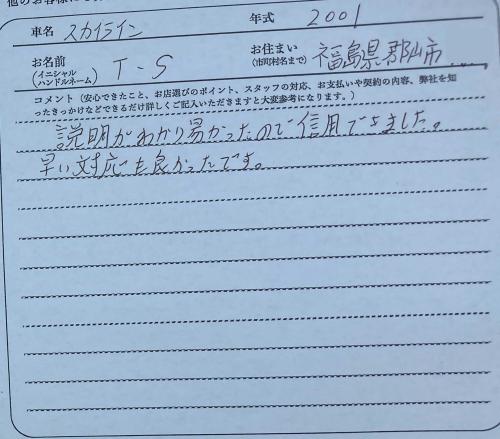 車名 スカイライン 年式 2001
お名前 (イニシャル ハンドルネーム) T-S お住まい (市町村名まで) 福島県郡山市
コメント（安心できたこと、お店選びのポイント、スタッフの対応、お支払いや契約の内容、弊社を知
ったきっかけなどできるだけ詳しくご記入いただきますと大変参考になります。）
説明がわかり易かったので信用できました。
早い対応も良かったです。